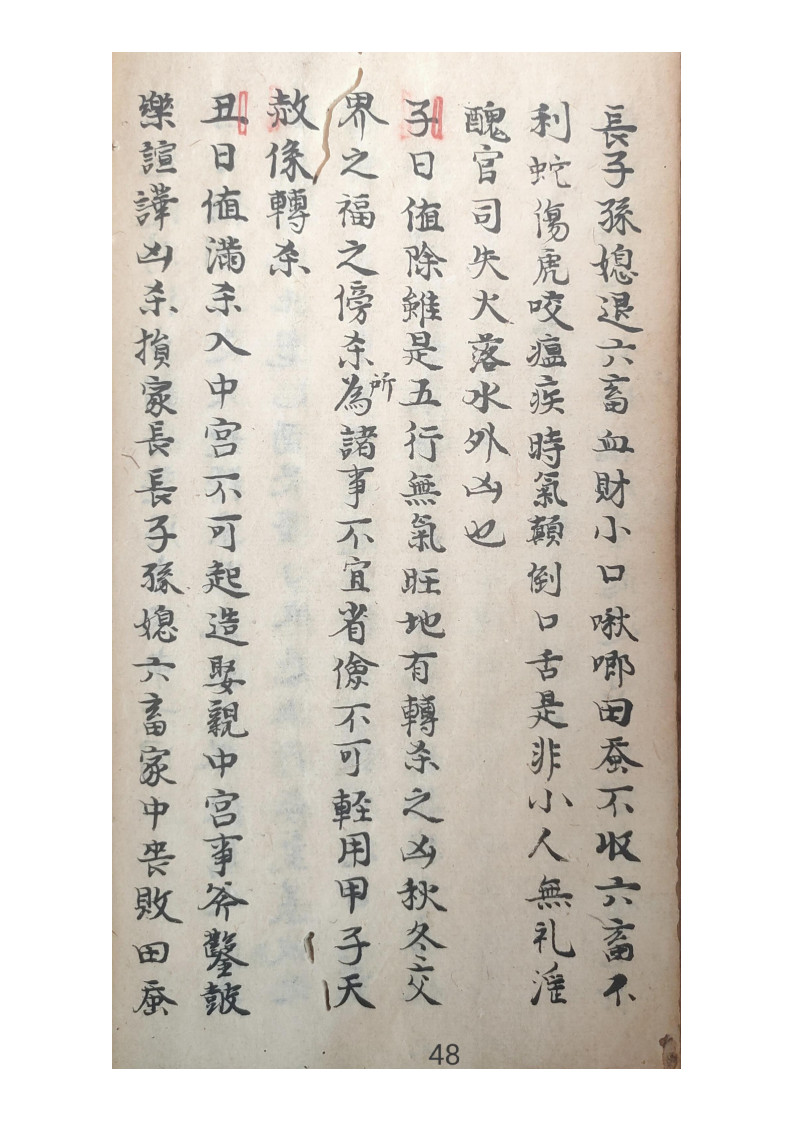 長子孫媳退六畜血財小口啾唧田蚕不収六畜不
利蛇傷虎咬瘟疾時氣顛倒口舌是非小人無礼淫
醜官司失火落水外凶也
子日值除雖是五行無氣旺地有轉杀之凶秋冬交
界之福之傍杀為所諸事不宜省儉不可輕用甲子天
赦像轉杀
丑日值滿杀入中宮不可起造娶親中宮事斧鑿皷
樂諠譁凶杀損家長長子孫媳六畜家中丧敗田蚕
48